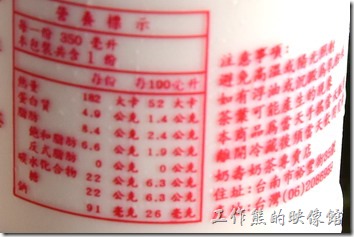 營養標示
每一份 350 毫升
本包裝共含 1 份
每份 每100毫升
熱量 182 大卡 52 大卡
蛋白質 4.9 公克 1.4 公克
脂肪 8.4 公克 2.4 公克
飽和脂肪 6.6 公克 1.9 公克
反式脂肪 0 公克 0 公克
碳水化合物 22 公克 6.3 公克
糖 22 公克 6.3 公克
鈉 91 毫克 26 毫克
注意事項:
避免高溫或陽光照射
如有浮油或沉澱
茶葉可能產生
本商品為當天
離開冷藏後請當天
奶壽熊茶專賣店
住址:台南市裕農路
產地:台灣(06)
工作熊的映像館